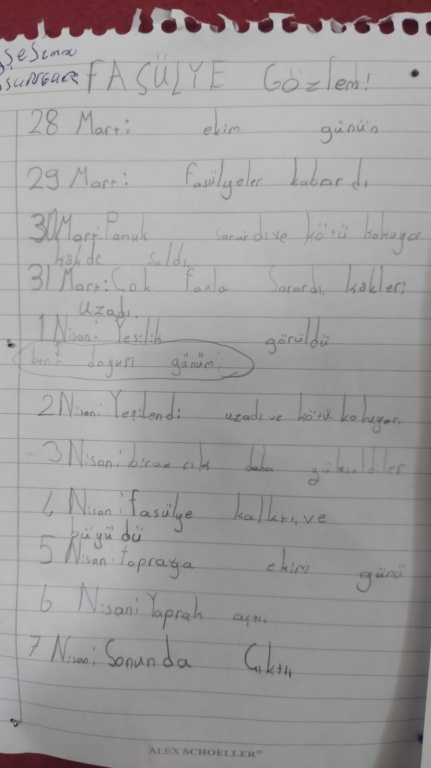 FASÜLYE Gözlem!
28 Mart: ekim günün
29 Mart: Fasülyeler kabardı
30 Mart: Pamuk sarardı ve kötü kokuyor
kökde saldı.
31 Mart: Çok fazla Sarardı, kökleri
uzadı.
1 Nisan: Yeşilik görüldü
benim doğum günüm:
2 Nisan: Yeşilendi uzadı ve kötü kokuyor.
3 Nisan: biraz cık daha yükseldiler
4 Nisan: fasülye kalktı, ve
büyüdü
5 Nisan: toprağa ekim günü
6 Nisan: Yaprak açtı.
7 Nisan: Sonunda Çıktı,
ALEX SCHOELLER®